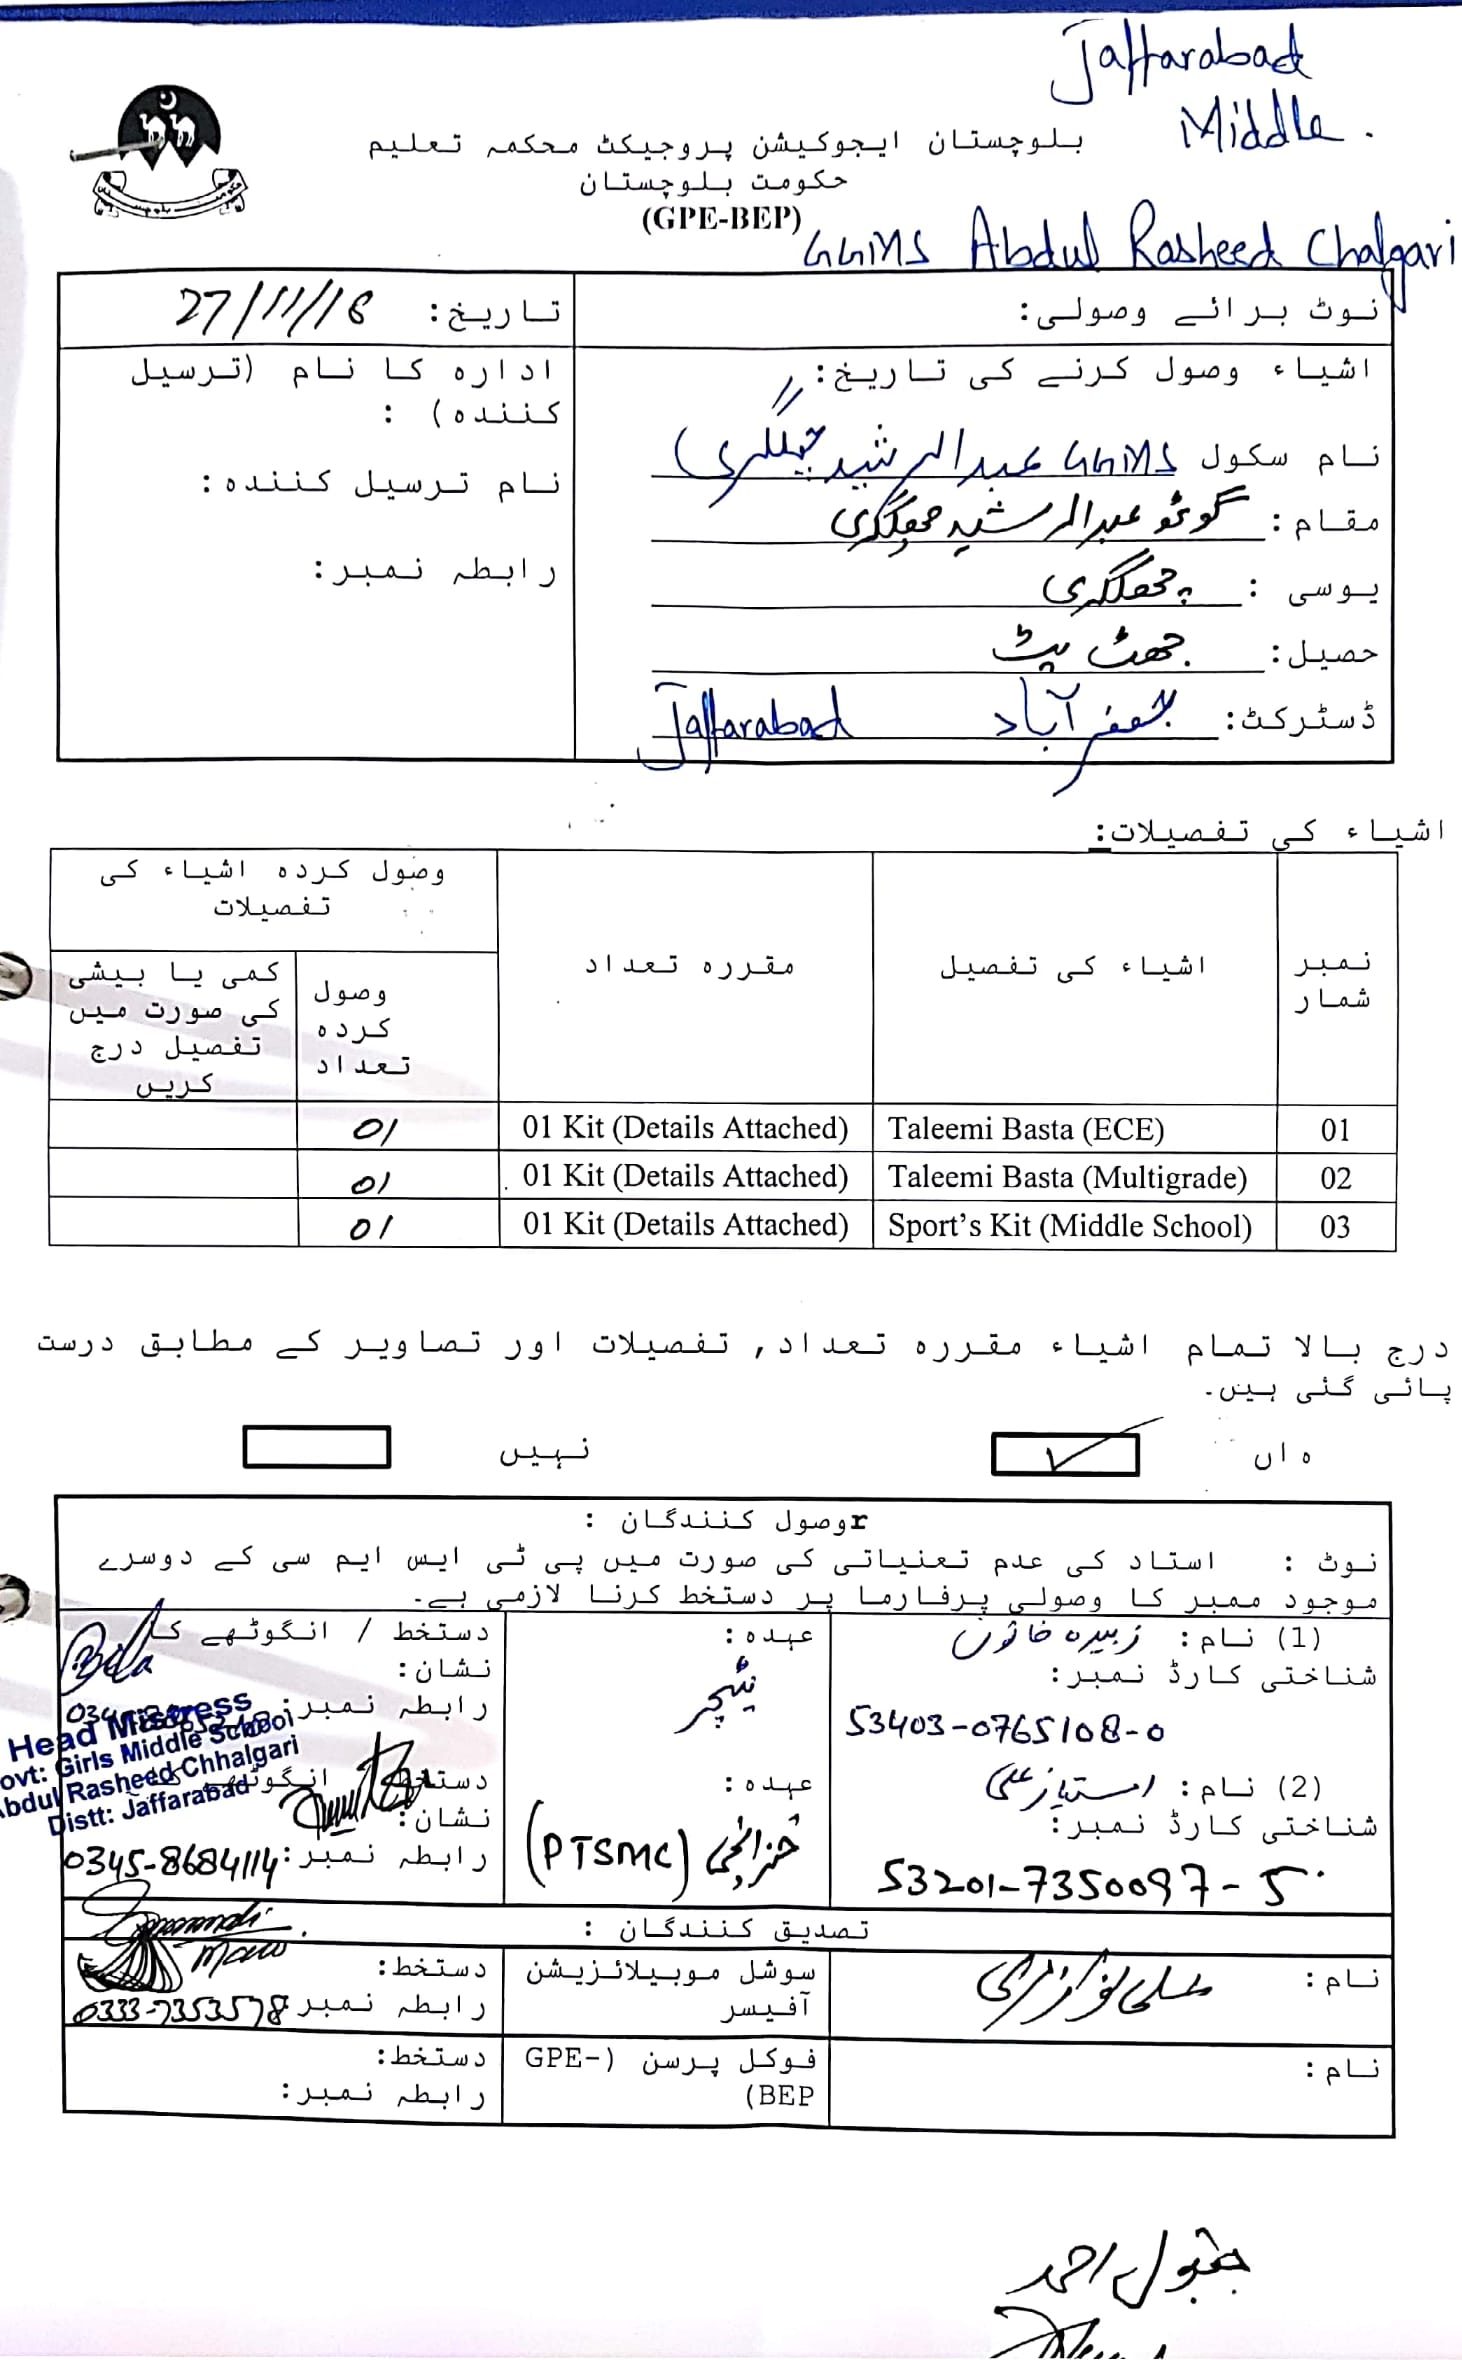 Jaffarabad
Middle.
بلوچستان ایجوکیشن پروجیکٹ محکمہ تعلیم
حکومت بلوچستان
(GPE-BEP)
GGMS Abdul Rasheed Chalgari
نوٹ برائے وصولی:
تاریخ: 27/11/18
اشیاء وصول کرنے کی تاریخ: //
ادارہ کا نام (ترسیل کنندہ) :
نام سکول GGMS عبدالرشید چھلگری
نام ترسیل کنندہ:
مقام: گوٹھ عبدالرشید چھلگری
رابطہ نمبر:
یوسی : چھلگری
حصیل: جھٹ پٹ
ڈسٹرکٹ: جعفر آباد Jaffarabad
اشیاء کی تفصیلات:
نمبر شمار
اشیاء کی تفصیل
مقررہ تعداد
وصول کردہ اشیاء کی تفصیلات
وصول کردہ تعداد
کمی یا بیشی کی صورت میں تفصیل درج کریں
01 Taleemi Basta (ECE) 01 Kit (Details Attached) 01
02 Taleemi Basta (Multigrade) 01 Kit (Details Attached) 01
03 Sport's Kit (Middle School) 01 Kit (Details Attached) 01
درج بالا تمام اشیاء مقررہ تعداد, تفصیلات اور تصاویر کے مطابق درست
پائی گئی ہیں۔
ہاں ✓ نہیں
rوصول کنندگان :
نوٹ : استاد کی عدم تعنیاتی کی صورت میں پی ٹی ایس ایم سی کے دوسرے
موجود ممبر کا وصولی پرفارما پر دستخط کرنا لازمی ہے۔
(1) نام: زبیدہ خاتون
شناختی کارڈ نمبر:
53403-0765108-0
عہدہ:
ٹیچر
دستخط / انگوٹھے کا
نشان:
رابطہ نمبر:
Head Mistress
Govt: Girls Middle School
Abdul Rasheed Chhalgari
Distt: Jaffarabad
(2) نام: امتیاز علی
شناختی کارڈ نمبر:
53201-7350097-5
عہدہ:
خزانچی (PTSMC)
دستخط / انگوٹھے کا
نشان:
رابطہ نمبر: 0345-8684114
تصدیق کنندگان :
نام:
سوشل موبیلائزیشن
آفیسر
دستخط:
رابطہ نمبر: 0333-7353578
نام:
فوکل پرسن (GPE-BEP)
دستخط:
رابطہ نمبر: